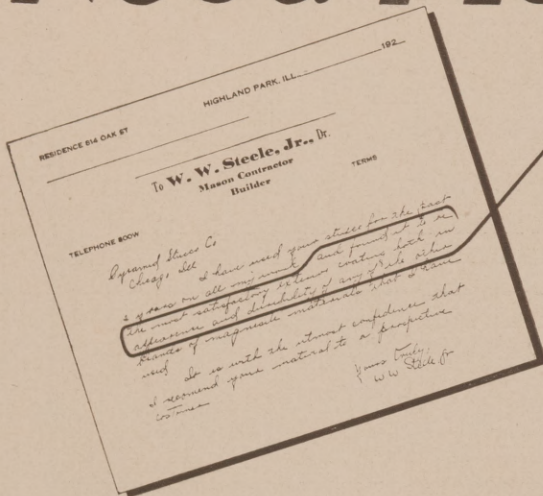 HIGHLAND PARK, ILL. 192
RESIDENCE 614 OAK ST
To W. W. Steele, Jr., Dr.
Mason Contractor
Builder
TELEPHONE 800W
TERMS
Pyramid Stucco Co
Chicago Ill
I have used your stucco for the past
years on all my work and found it to be
the most satisfactory exterior coating both in
appearance and durability of any of the other
brands of magnesite materials that I have
used
It is with the utmost confidence that
I recomend your material to a perspective
costumer
Yours Truly
W W Steele Jr